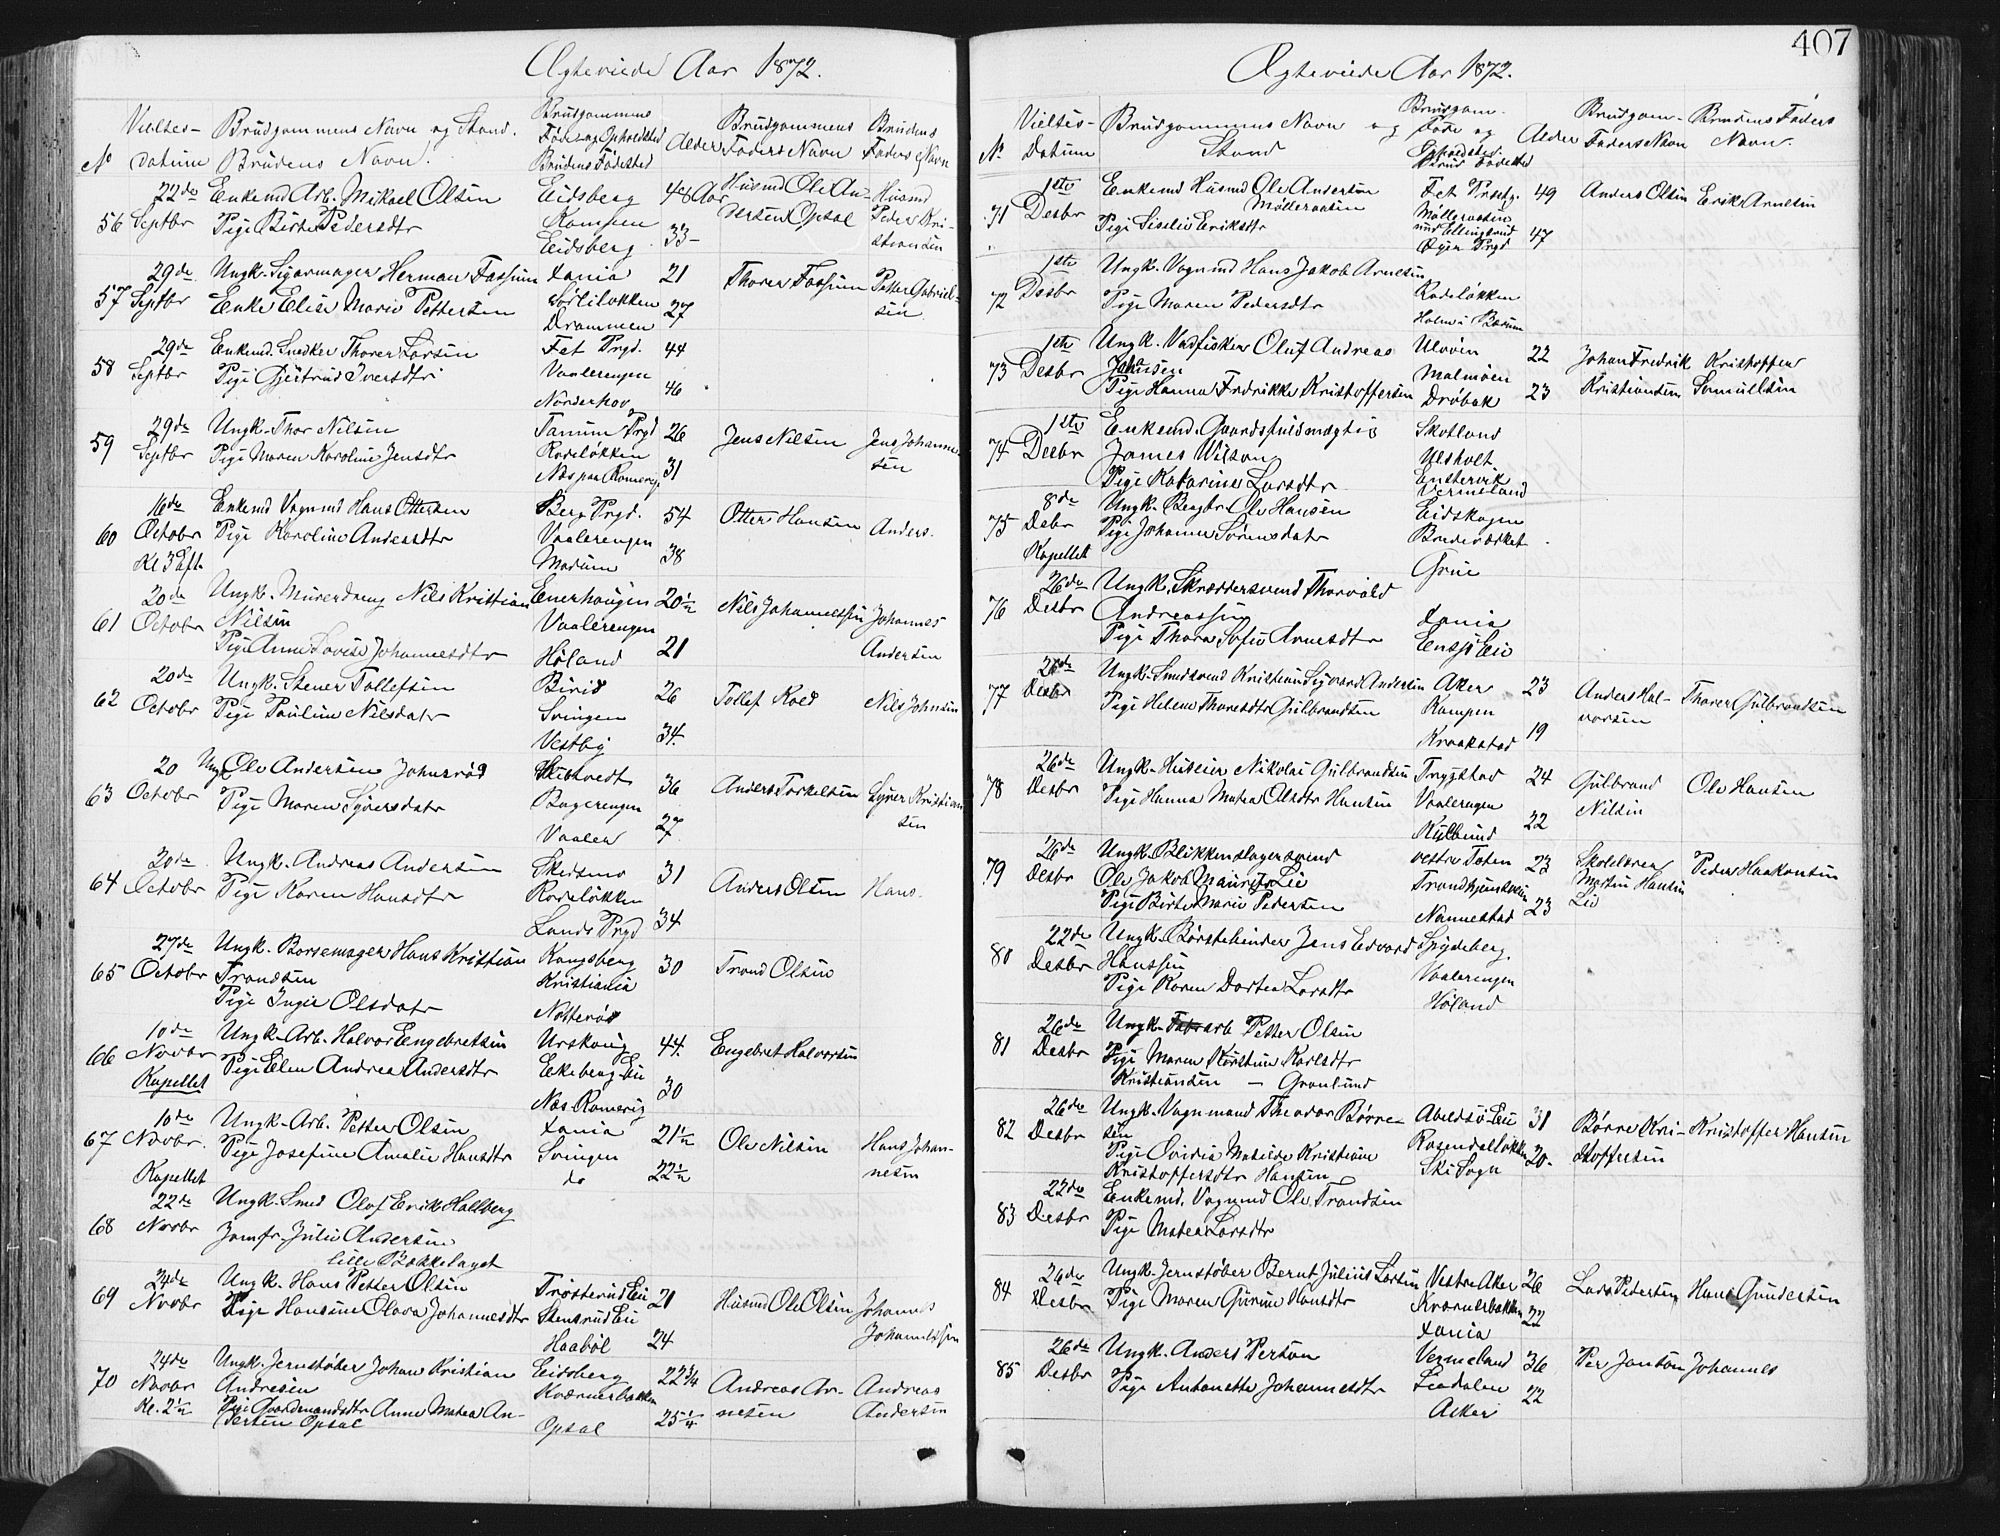 407
Ægteviede Aar 1872.
Vielses- Brudgommens Navn og Stand. Brudgommens Føde og Opholdsted Alder Brudgommens Brudens
No datum Brudens Navn. Brudens Fødested Faders Navn Faders Navn
56 22de Septbr Enkemd Arb. Mikael Olsen Eidsberg 48 Aar Husmd Ole Andersen Opsal Husmd Peder Kristiansen
Pige Birthe Pedersdtr Kampen Eidsberg 33
57 29de Septbr Ungk. Sigarmager Herman Fossum Xania 21 Thorer Fossum Petter Gabrielsen
Enke Elise Marie Pettersen Sørliløkken Drammen 27
58 29de Septbr Enkemd. Snedker Thorer Larsen Fet Prgd. 44
Pige Gjertrud Iversdtr Vaalerengen Norderhov 46
59 29de Septbr Ungk. Thor Nilsen Tanum Prgd 26 Jens Nilsen Jens Johannesen
Pige Maren Karoline Jensdtr Rodeløkken Næs paa Romerig 31
60 16de October Kl 3 Eft. Enkemd Vognmd Hans Ottersen Berg Prgd. 54 Otter Hansen Anders.
Pige Karoline Andersdtr Vaalerengen Modum 38
61 20de October Ungk. Murerdreng Nils Kristian Nilsen Enerhougen 20½ Nils Johannessen Johannes Andersen
Pige Anne Lovise Johannesdtr Vaalerengen Høland 21
62 20de October Ungk. Stener Tollefsen Birid 26 Tollef Roed Nils Johnsen
Pige Pauline Nilsdatr Svingen Vestby 34
63 20 October Ungk Ole Andersen Johnsrød 36 Anders Torkelsen Syver Kristiansen
Pige Maren Syversdatr Bagerengen Vaaler 27
64 20de October Ungk. Andreas Andersen Skedsmo 31 Anders Olsen Hans.
Pige Karen Hansdtr Rodeløkken Lands Prgd 34
65 27de October Ungk. Børsemager Hans Kristian Trondsen Kongsberg 30 Trond Olsen
Pige Ingie Olsdatr Kristiania Nøtterø
66 10de Novbr Kapellet Ungk. Arb. Halvor Engebretsen Urskoug 44 Engebret Halvorsen
Pige Elen Andrea Andersdtr Ekeberg Eie Næs Romerig 30
67 10de Novbr. Kapellet Ungk. Arb. Petter Olsen Xania 21½ Ole Nilsen Hans Johannesen
Pige Josefine Amalie Hansdtr Svingen do 22½
68 22de Novbr Ungk. Smed Olof Erik Hallberg
Jomfr. Julie Andersen
Lille Bækkelaget
69 24de Novbr Ungk. Hans Petter Olsen Trøsterud Eie 21 Husmd Ole Olsen Johannes Johannessen
Pige Hansine Olava Johannesdtr Stensrud Eie Haabøl 24
70 24de Novbr Kl. 2½ Ungk. Jernstøber Johan Kristian Andresen Eidsberg 22¾ Andreas Arnesen Andreas Andersen
Pige Gaardmandsdtr Anne Matea Andersen Opsal Kværnerbakken Opsal 25¼
Ægteviede Aar 1872.
Vielses- Brudgommens Navn og Brudgom. Føde og Alder Brudgom- Brudens Faders
No. Datum Stand Opholdsted. Brud Fødested Faders Navn Navn.
71 1ste Desbr Enkemd Husmd Ole Andersen Møllerasten Fet Prestg. 49 Anders Olsen Erik Arnesen
Pige Siselie Eriksdtr Møllerasten und Ellingsrud Øyer Prgd 47
72 1ste Desbr Ungk. Vognmd Hans Jakob Arnesen Rodeløkken
Pige Maren Pedersdtr Holm i Bærum
73 1ste Desbr Ungk. Vadfisker Oluf Andreas Johansen Ulvøen 22 Johan Fredrik Kristiansen Kristoffer Samuelsen
Pige Hanna Fredrikke Kristoffersen Malmøen Drøbak 23
74 1ste Desbr Enkemd. Gaardsfuldmægtig James Wilson Skotland
Pige Katarine Larsdtr Ulsholt. Vermeland
75 8de Desbr Kapellet Ungk. Ole Hansen Eidskogen
Pige Johanne Sørensdatr Grue
76 26de Desbr Ungk. Skræddersvend Thorvald Andreassen Xania
Pige Thora Sofie Arnesdtr Ensjø Eie
77 26de Desbr Ungk. Smedsvend Kristian Sigvard Andersen Aker 23 Anders Halvorsen Thorer Gulbrandsen
Pige Helene Thoresdtr Gulbrandsen Kampen Kraakstad 19
78 26de Desbr Ungk. Huseier Nikolai Gulbrandsen Trygstad 24 Gulbrand Nilsen Ole Hansen
Pige Hanna Matea Olsdtr Hansen Vaalerengen 22
79 26de Desbr Ungk. Blikkenslagersvend Ole Jakob Mauritz Lie vestre Toten 23 Skolelærer Martin Hansen Lie Peder Haakonsen
Pige Birte Marie Pedersen Trondhjemsveien Nannestad 23
80 22de Desbr Ungk. Børstebinder Jens Edvard Hanssen Spydeberg.
Pige Karen Dortea Larsdtr Vaalerengen Høland
81 26de Desbr Ungk. Fabr arb Petter Olsen
Pige Maren Kirstine Karlsdtr
Kristiansen — Grønlund
82 26de Desbr Ungk. Vognmand Theodor Børresen Abeldsø Eie 31 Børre Kristoffersen Kristoffer Hansen
Pige Ovidia Matilde Kristiane Kristoffersdtr Hansen Rosendalløkken Ski Sogn 20
83 22de Desbr Enkemd. Vognmd Ole Trondsen
Pige Matea Larsdtr
84 26de Desbr Ungk. Jernstøber Bernt Julius Larsen Vestre Aker 26 Lars Pedersen Hans Gundersen
Pige Maren Gurine Hansdtr Kværnerbakken Xania 22
85 26de Desbr Ungk. Anders Person Vermeland 36 Per Janson Johannes
Pige Antonette Johannesdtr Liadalen Aker 22